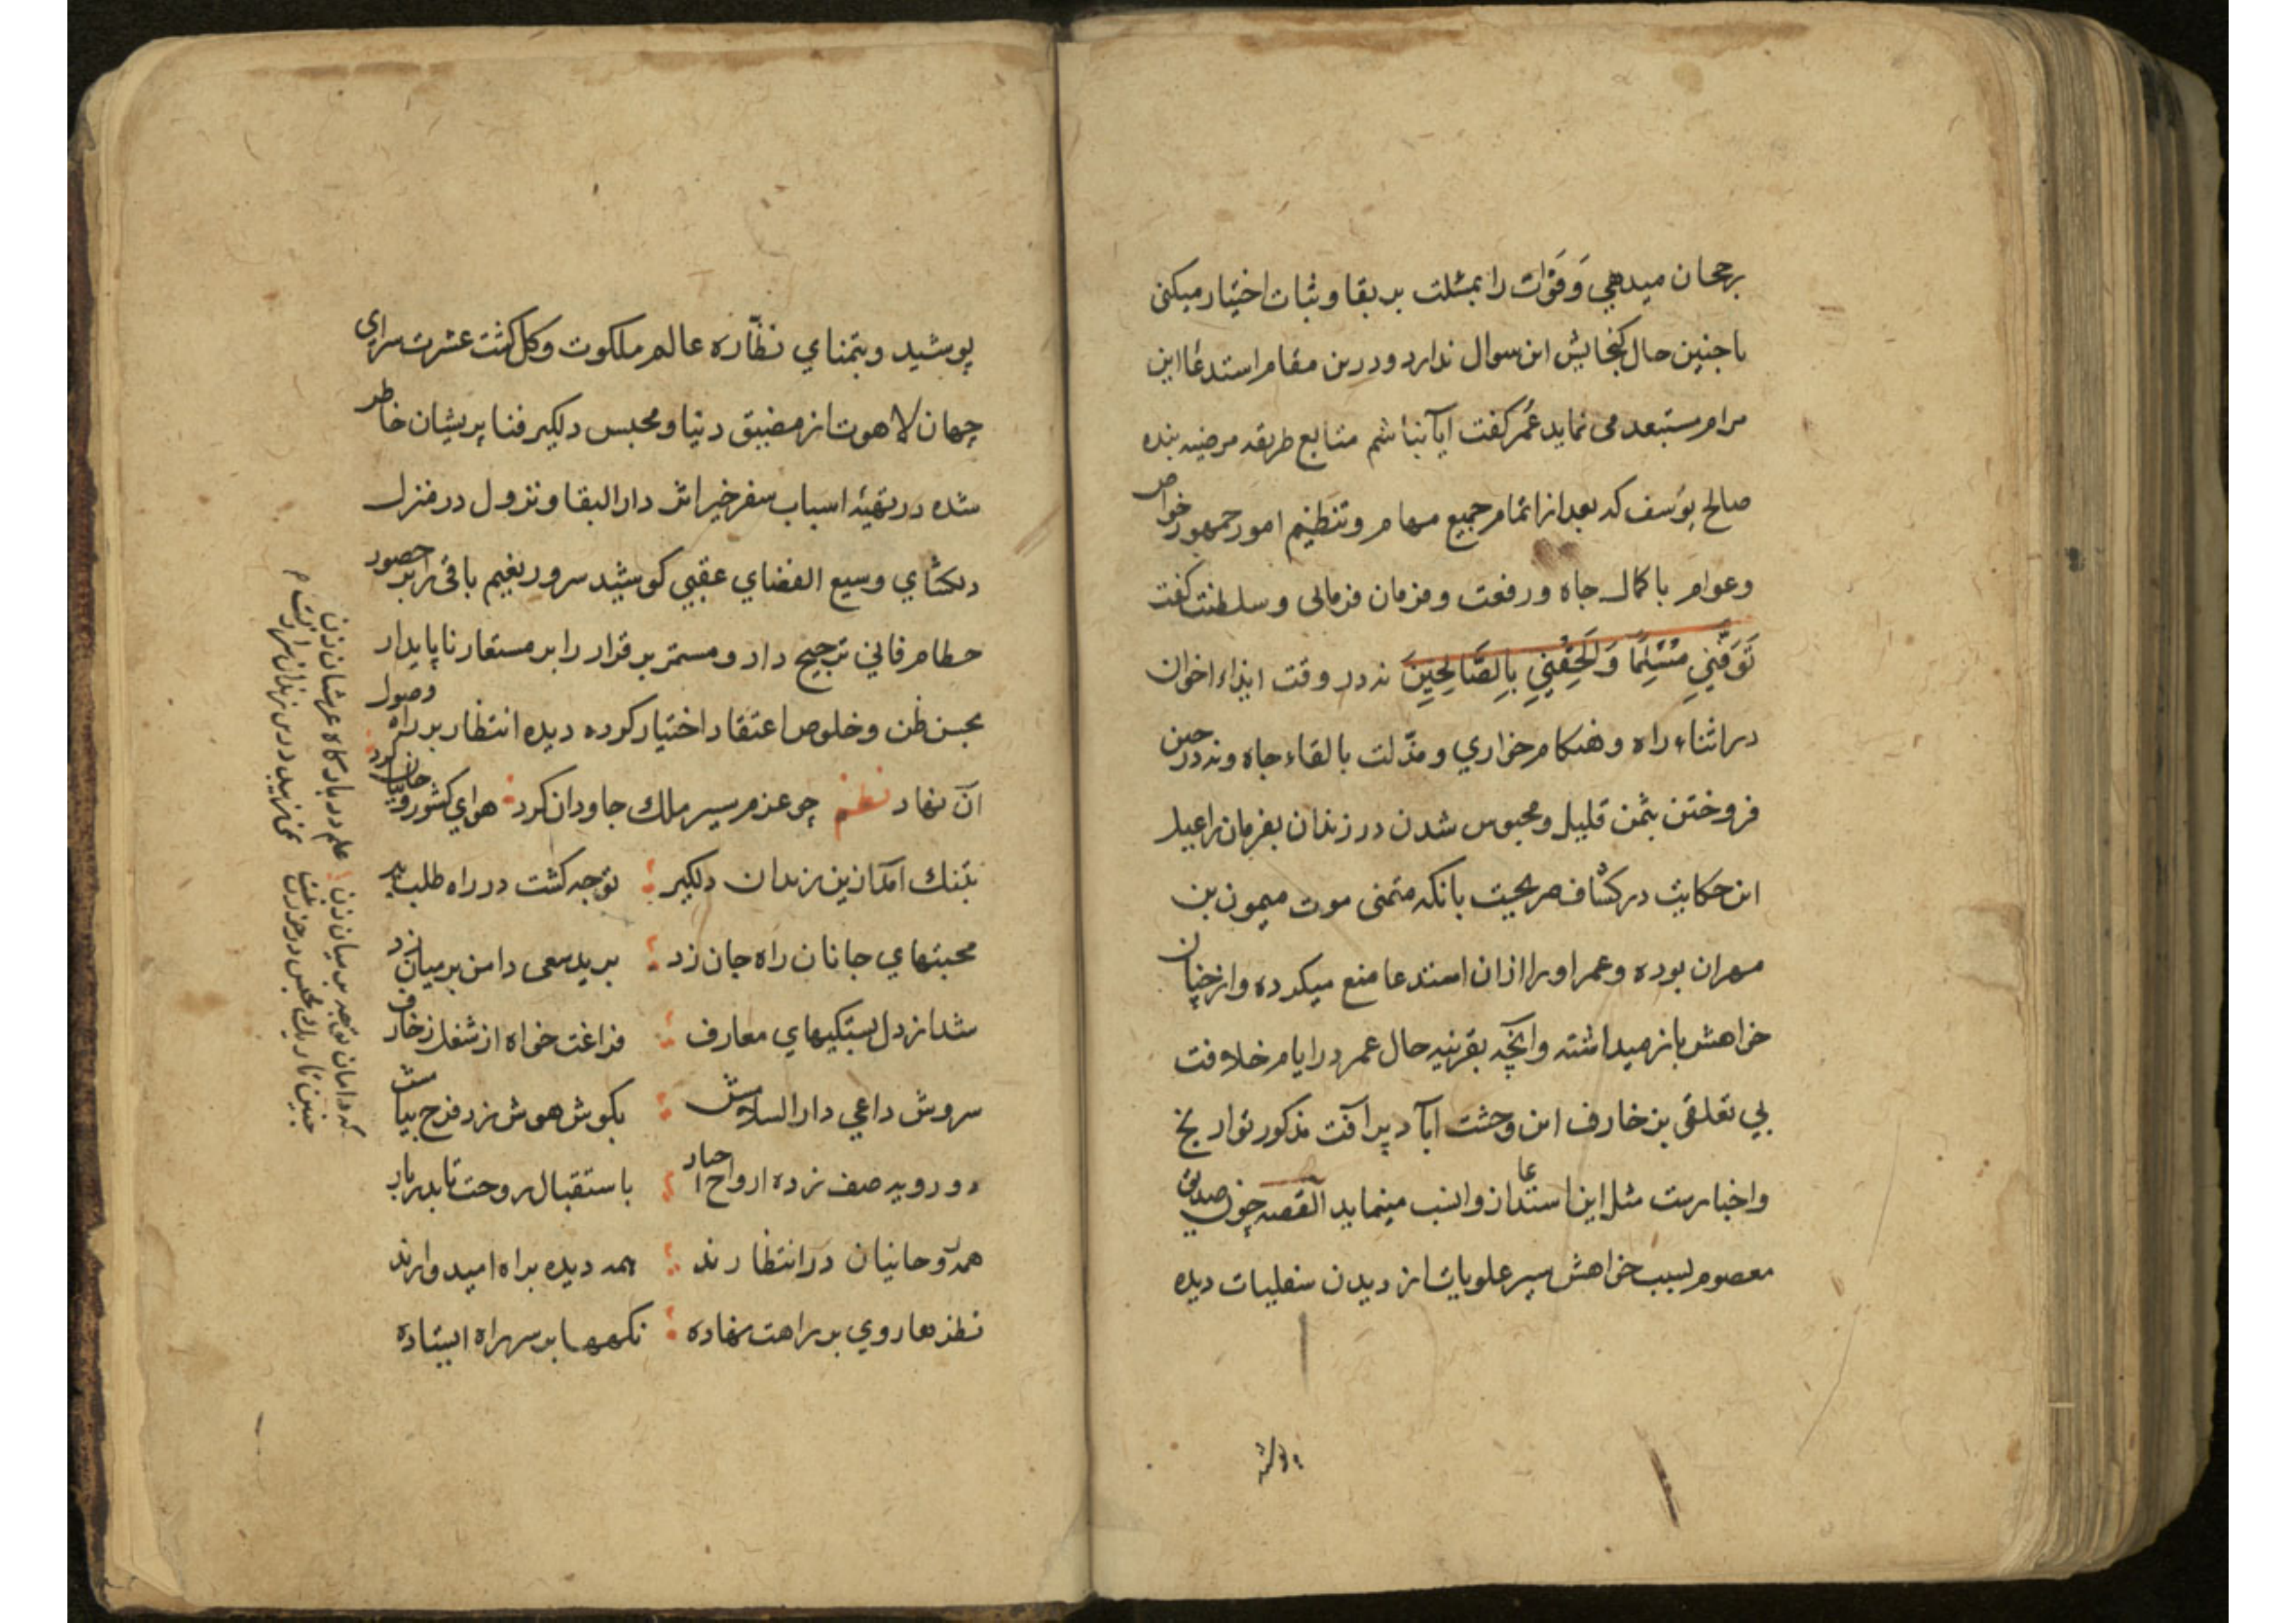 برجحان میدهي وَفَوْات را بمثلت بر بقا و ثبات اختیار میکنی
با چنین حال کنجایش این سوال ندارد و درین مقام استدعا این
مرام مستبعد می نماید عُمَر کفت ایا نباشم متابع طریقه مرضیه بنده
صالح یوُسف که بعد از اتمام جمیع مهام و تنظیم امور جمهور خواص
و عوام با کمال جاه و رفعت و فرمان فرمائی و سلطنت کفت
تَوَفَّنِيِ مُسْلِمًا وَاَلحِقْنِيِ بِالصَّالِحِينَ نه در وقت ایذاء اخوان
در اثناء راه و هنکام خواري و مذّلت بالقاء جاه و نه در حین
فروختن بثمن قلیل و محبوس شدن در زندان بفرمان راعیل
این حکایت در کشاف صریحیت بانکه متمنی موت میمون بن
مهران بوده و عمر او را ازان استدعا منع میکرده و از چنان
خواهش باز میداشته و آنچه بقرینه حال عمر در ایام خلافت
بي تعلقی بزخارف این وحشت آباد پر آفت مذکور تواریخ
و اخبارست مثل این استدعا ازو انسب مینماید القصه چون صدیق
معصوم بسبب خواهش سیر علویات از دیدن سفلیات دیده
پوشید
پوشید و بتمناي نظّاره عالم ملکوت و کل کشت عشرت سراي
جهان لاهوت از مضیق دنیا و محبس دلکیر فنا پریشان خاطر
شده در تهیّه اسباب سفر خیر اثر دار البقا و نزول در منزل
دلکشاي وسیع الفضاي عقبي کوشید سرور بغیم باقی را بر حصور
حطام فاني ترجیح داد و مستمر بر قرار را بر مستعار ناپایدار
بحسن ظن و خلوص اعتقاد اختیار کرده دیده انتظار بر راه وصول
آن نهاد نظم چو عزم سیر ملك جاودان کرد هواي کشور روحانیان کرد
بتنك آمد ازین زندان دلکیر توجه کشت در راه طلب پیر
محبتهاي جانان راه جان زد برید سعی دامن بر میان زد
شد از دل بستکیهاي معارف فراغت خواه از شغل زخارف
سروش داعي دار السلامش بکوش هوش زد فرخ پیامش
دو رویه صف زده ارواح احباب باستقبال روحت تا بدر یاب
همه روحانیان در انتظارند همه دیده براه امیدوارند
نظرها روي بر راهت نهاده نکهها بر سر راه ایستاده
علم در بارکاه عرشیان زن
که دامان توجه بر میان زن